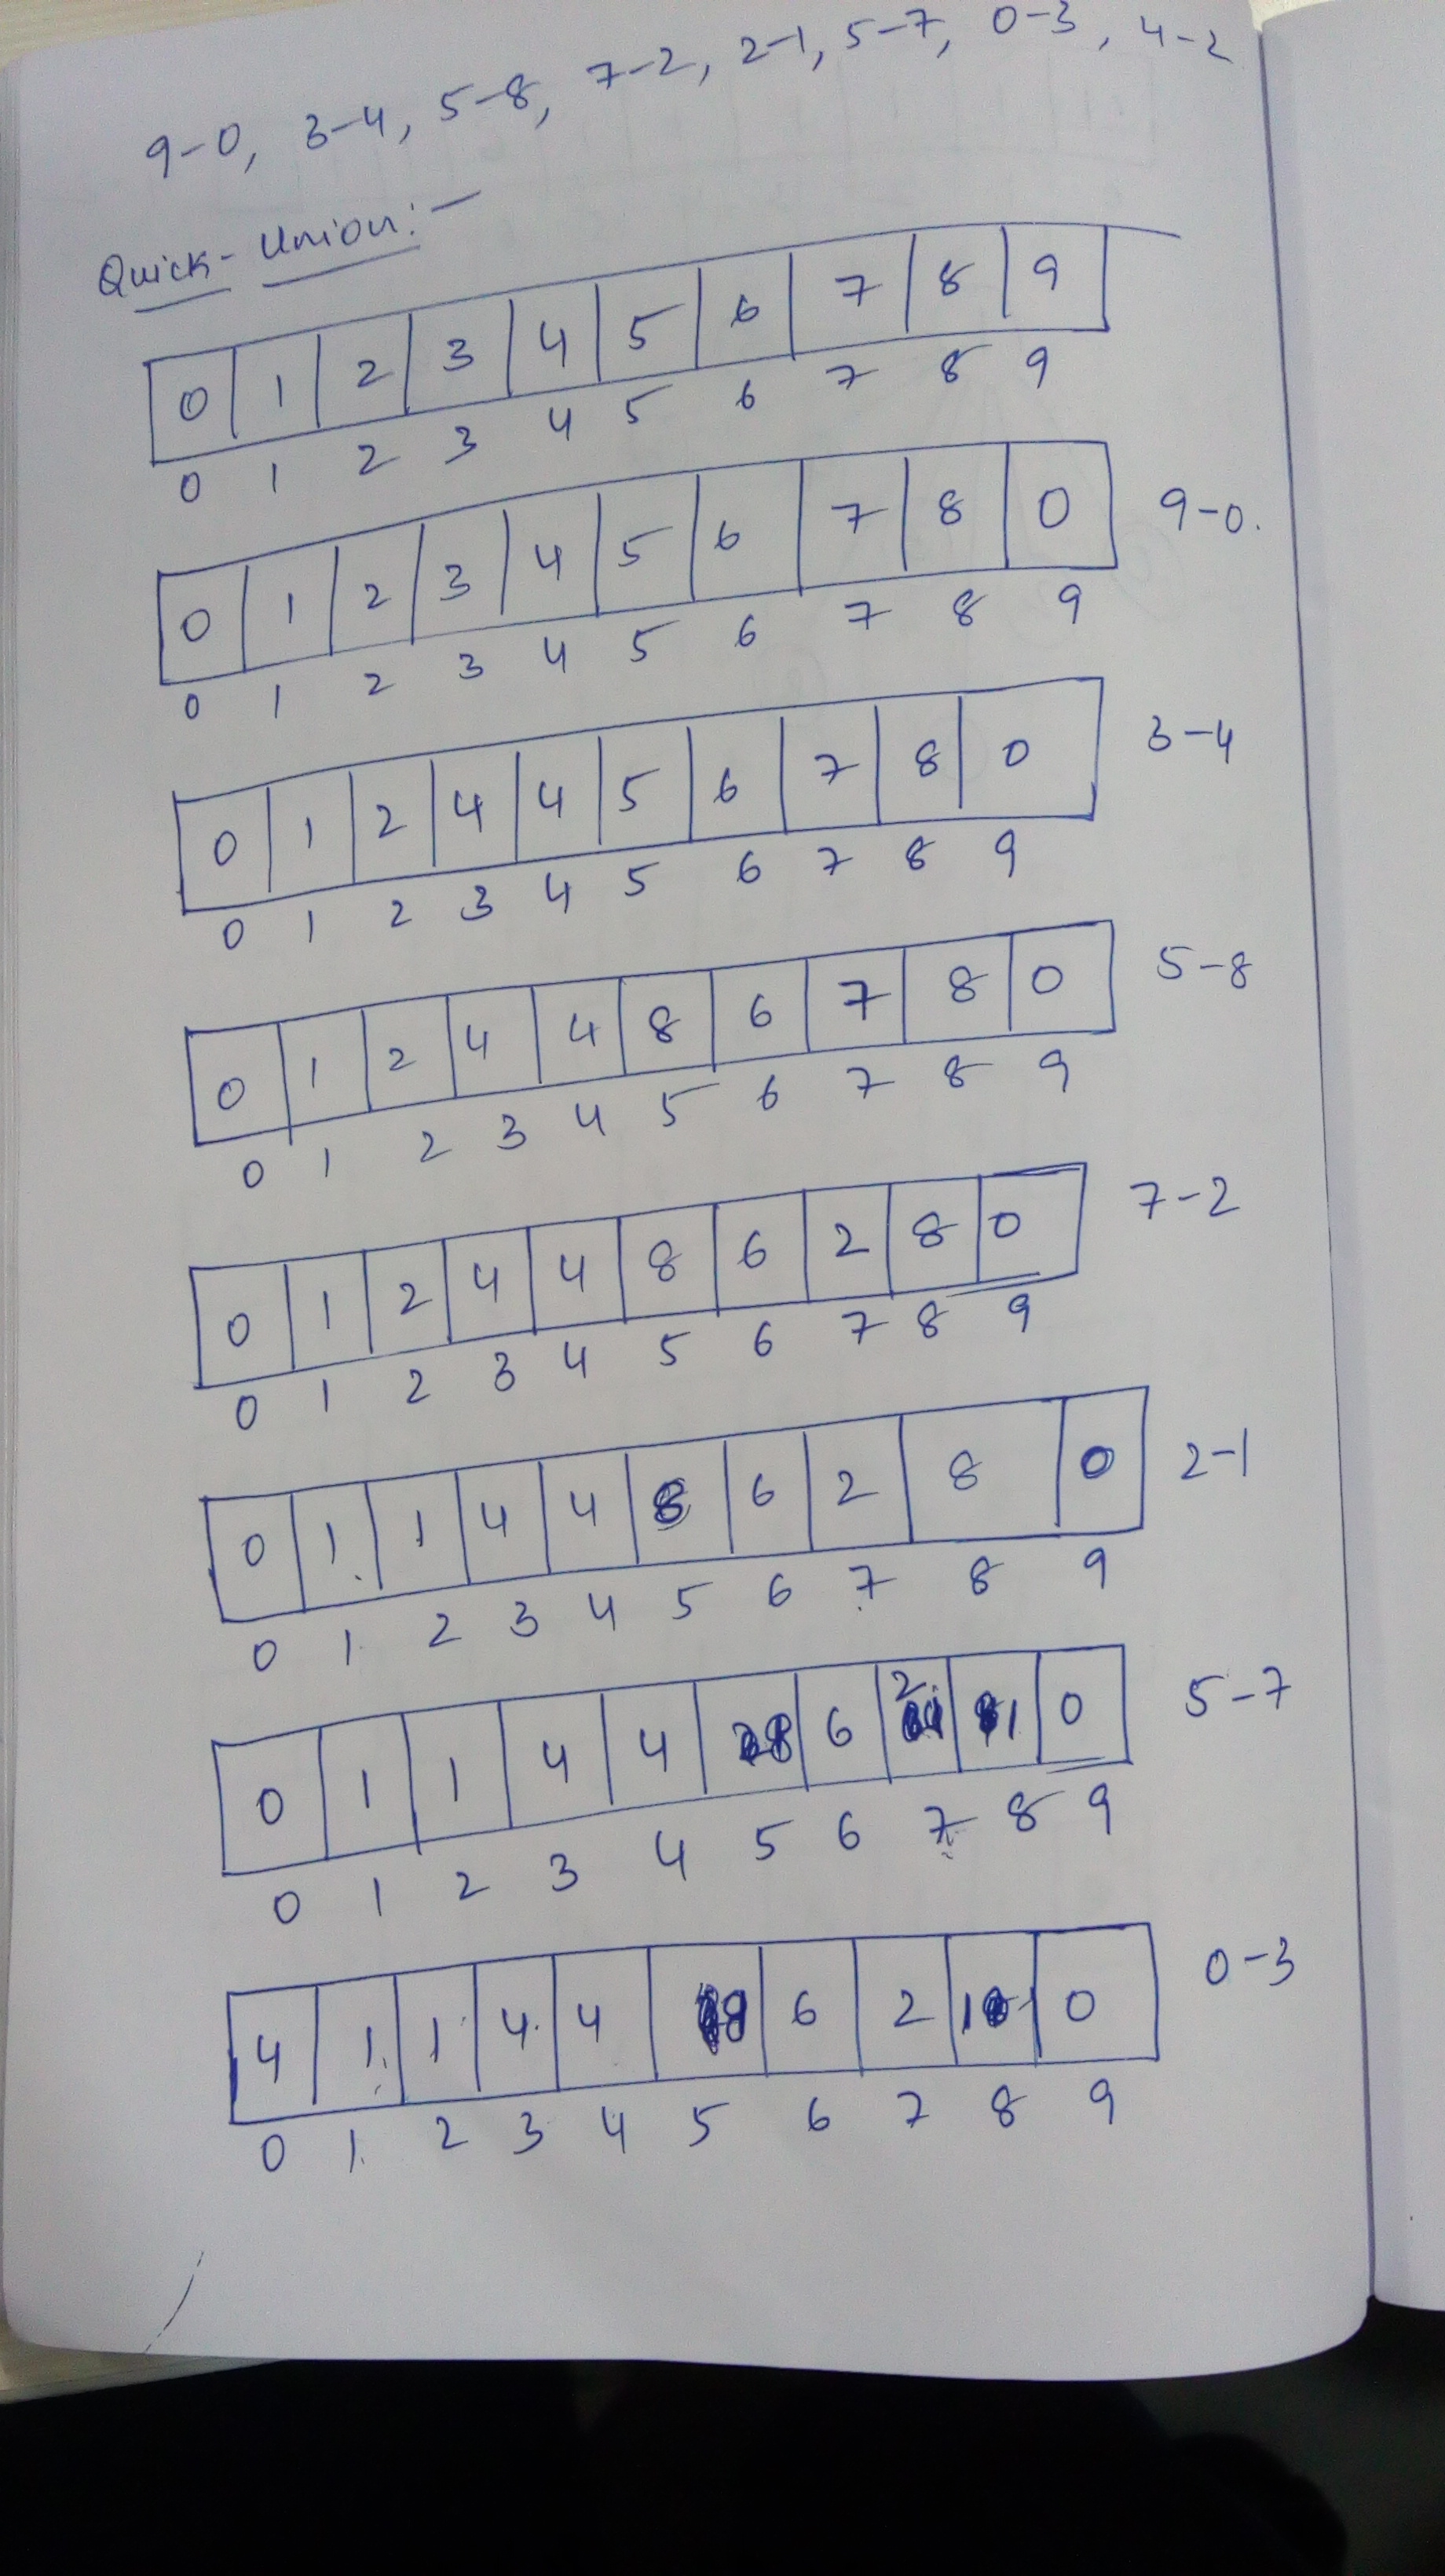 9-0, 3-4, 5-8, 7-2, 2-1, 5-7, 0-3, 4-2
Quick-Union:-
0 1 2 3 4 5 6 7 8 9
0 1 2 3 4 5 6 7 8 9
0 1 2 3 4 5 6 7 8 0 9-0.
0 1 2 3 4 5 6 7 8 9
0 1 2 4 4 5 6 7 8 0 3-4
0 1 2 3 4 5 6 7 8 9
0 1 2 4 4 8 6 7 8 0 5-8
0 1 2 3 4 5 6 7 8 9
0 1 2 4 4 8 6 2 8 0 7-2
0 1 2 3 4 5 6 7 8 9
0 1 1 4 4 8 6 2 8 0 2-1
0 1 2 3 4 5 6 7 8 9
0 1 1 4 4 8 6 2 1 0 5-7
0 1 2 3 4 5 6 7 8 9
4 1 1 4 4 6 2 1 0 0-3
0 1 2 3 4 5 6 7 8 9